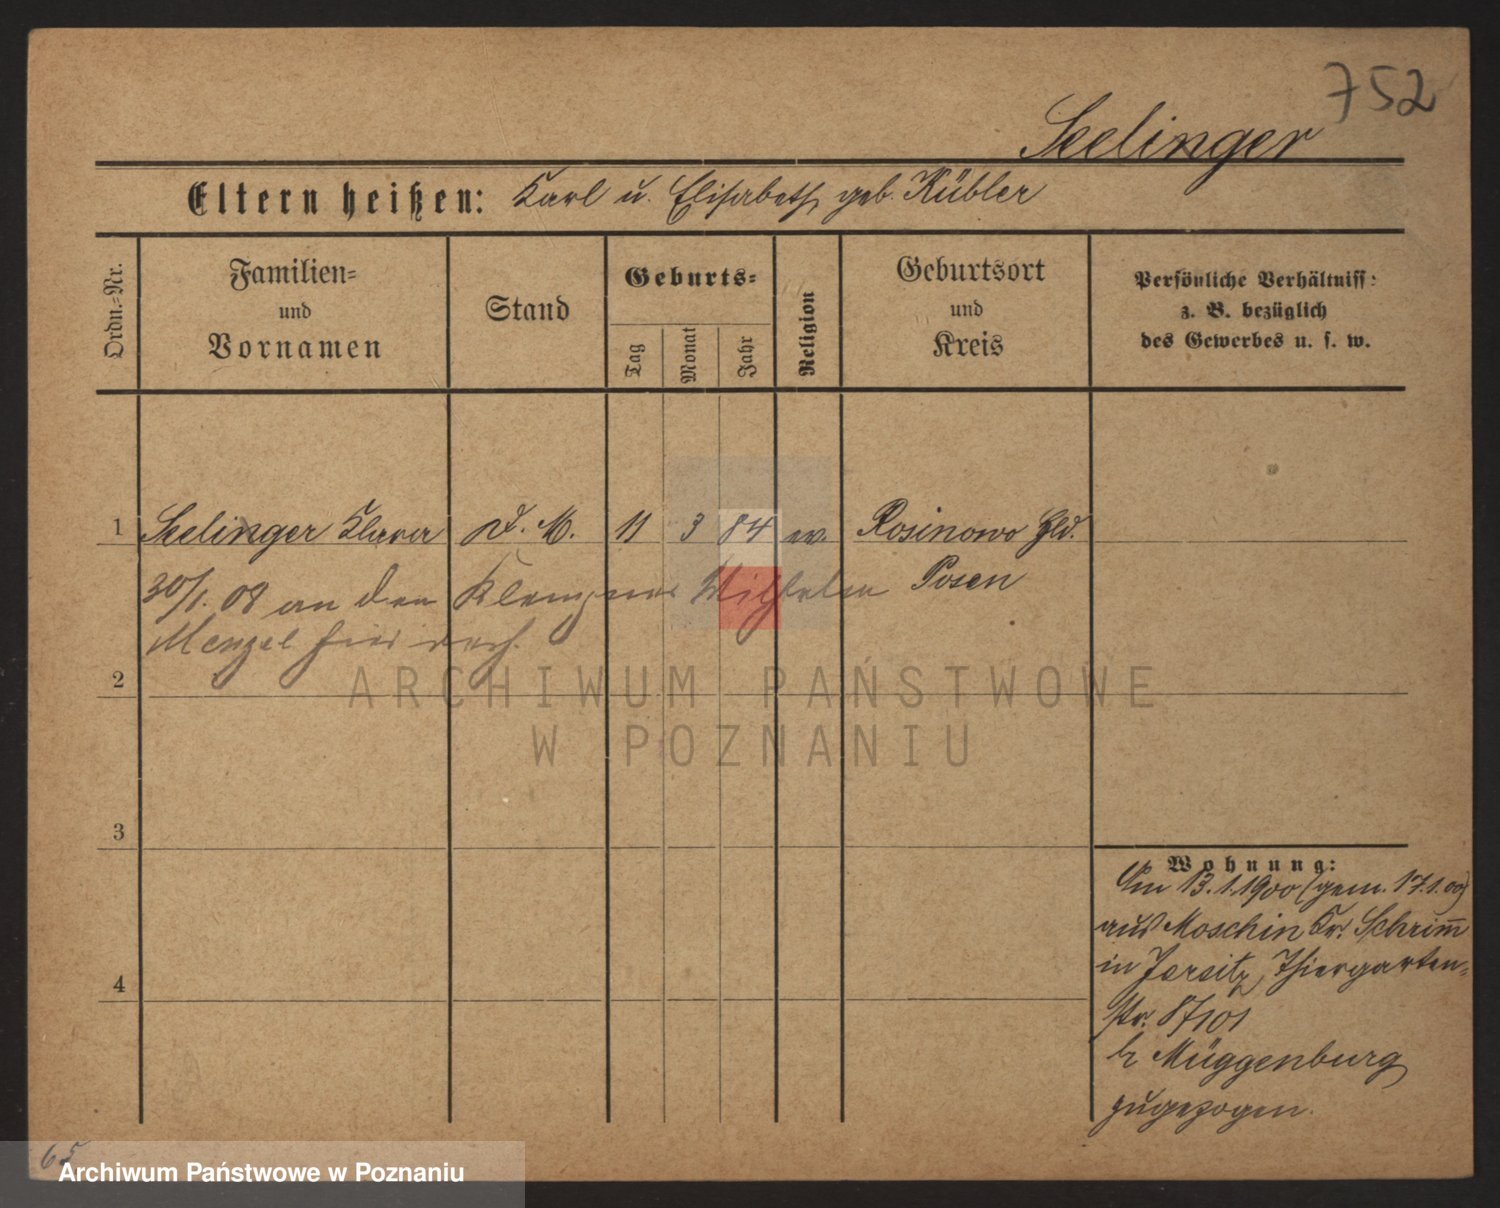 752
Seelinger
Eltern heißen: Karl u. Elisabeth geb. Kübler
Ordn.-Nr.
Familien-
und
Vornamen
Stand
Geburts-
Tag
Monat
Jahr
Religion
Geburtsort
und
Kreis
Persönliche Verhältniss:
z. B. bezüglich
des Gewerbes u. s. w.
1 Seelinger Klara D. M. 11 3 84 ev. Rosinowo Hld.
Posen
30/1. 08 an den Klempner Wilhelm
Menzel hier verh.
2
3
4
Wohnung:
Am 13.1.1900 (gem. 17.1.00)
aus Moschin Kr. Schrim̅
in Jersitz, Thiergarten-
str. 87/101
b. Müggenburg
zugezogen.
65
ARCHIWUM PAŃSTWOWE
W POZNANIU
Archiwum Państwowe w Poznaniu